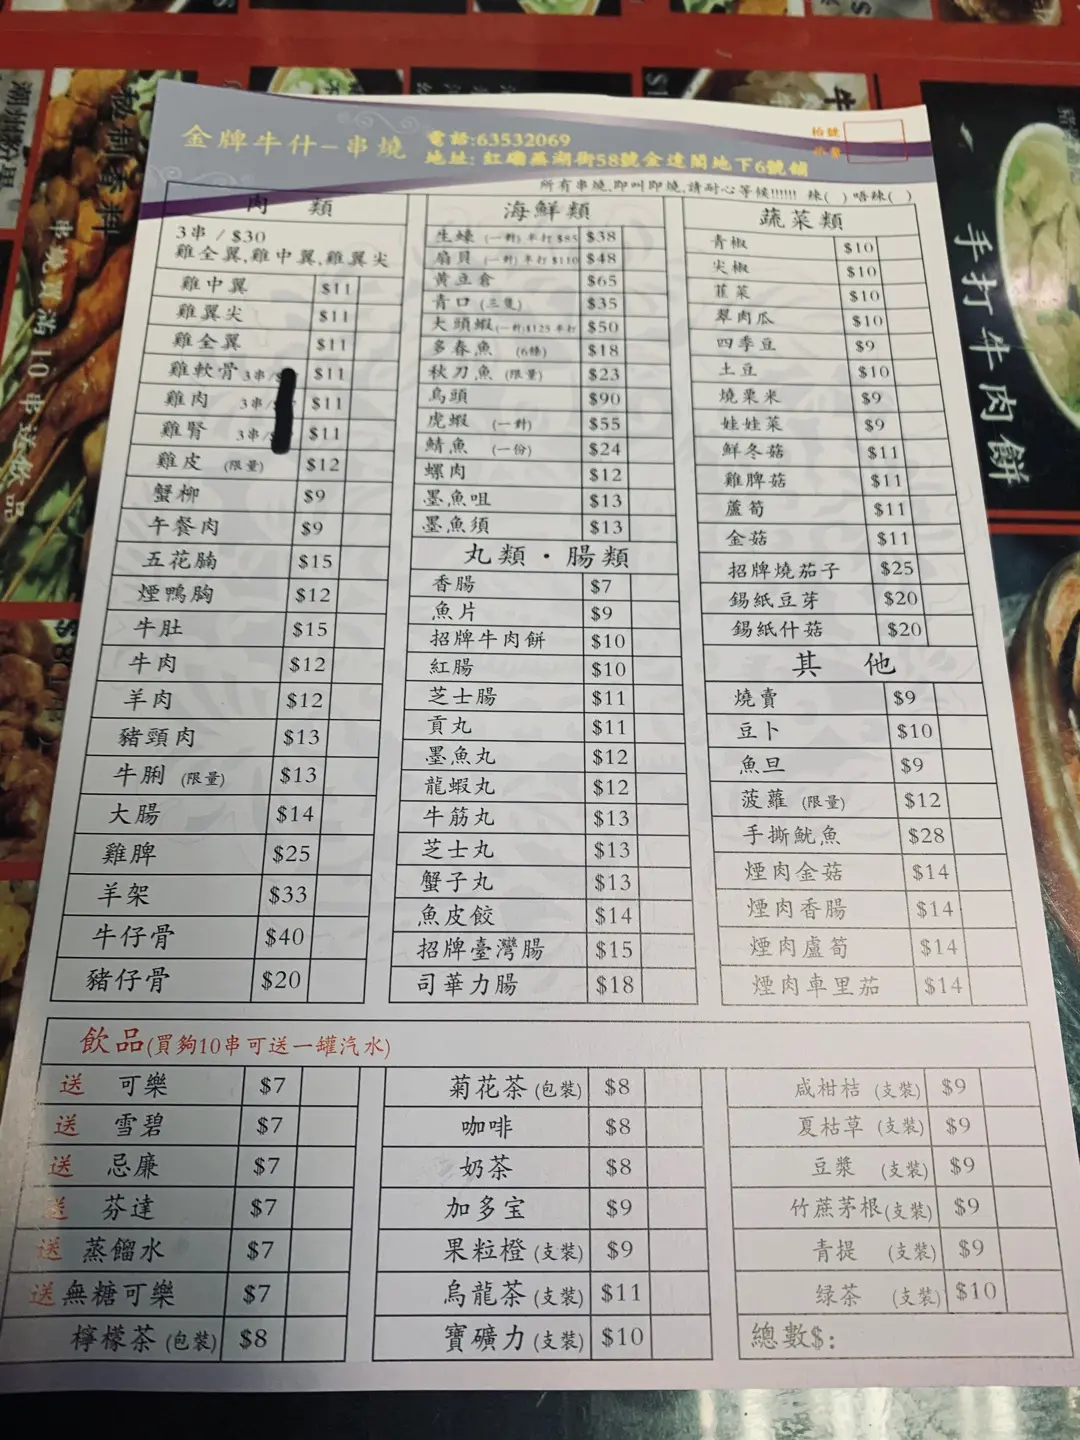 金牌牛什-串燒
電話:63532069
地址: 紅磡蕪湖街58號金達閣地下6號舖
枱號
所有串燒,即叫即燒,請耐心等候!!!!!! 辣( ) 唔辣( )
肉 類
3串 / $30
雞全翼,雞中翼,雞翼尖
雞中翼 $11
雞翼尖 $11
雞全翼 $11
雞軟骨 3串/ $11
雞肉 3串/ $11
雞腎 3串/ $11
雞皮 (限量) $12
蟹柳 $9
午餐肉 $9
五花腩 $15
煙鴨胸 $12
牛肚 $15
牛肉 $12
羊肉 $12
豬頸肉 $13
牛脷 (限量) $13
大腸 $14
雞脾 $25
羊架 $33
牛仔骨 $40
豬仔骨 $20
海鮮類
生蠔 (一對) 半打 $85 $38
扇貝 (一對) 半打 $110 $48
黄立倉 $65
青口 (三隻) $35
大頭蝦 (一對)$125 半打 $50
多春魚 (6條) $18
秋刀魚 (限量) $23
烏頭 $90
虎蝦 (一對) $55
鯖魚 (一份) $24
螺肉 $12
墨魚咀 $13
墨魚須 $13
丸類 · 腸類
香腸 $7
魚片 $9
招牌牛肉餅 $10
紅腸 $10
芝士腸 $11
貢丸 $11
墨魚丸 $12
龍蝦丸 $12
牛筋丸 $13
芝士丸 $13
蟹子丸 $13
魚皮餃 $14
招牌臺灣腸 $15
司華力腸 $18
蔬菜類
青椒 $10
尖椒 $10
韮菜 $10
翠肉瓜 $10
四季豆 $9
土豆 $10
燒粟米 $9
娃娃菜 $9
鮮冬菇 $11
雞脾菇 $11
蘆筍 $11
金菇 $11
招牌燒茄子 $25
錫紙豆芽 $20
錫紙什菇 $20
其 他
燒賣 $9
豆卜 $10
魚旦 $9
菠蘿 (限量) $12
手撕魷魚 $28
煙肉金菇 $14
煙肉香腸 $14
煙肉盧筍 $14
煙肉車里茄 $14
飲品(買夠10串可送一罐汽水)
送 可樂 $7
送 雪碧 $7
送 忌廉 $7
送 芬達 $7
送 蒸餾水 $7
送 無糖可樂 $7
檸檬茶 (包裝) $8
菊花茶 (包裝) $8
咖啡 $8
奶茶 $8
加多宝 $9
果粒橙 (支裝) $9
烏龍茶 (支裝) $11
寶礦力 (支裝) $10
咸柑桔 (支裝) $9
夏枯草 (支裝) $9
豆漿 (支裝) $9
竹蔗茅根 (支裝) $9
青提 (支裝) $9
绿茶 (支裝) $10
總數$:
手打牛肉餅
串燒買滿10串送飲品